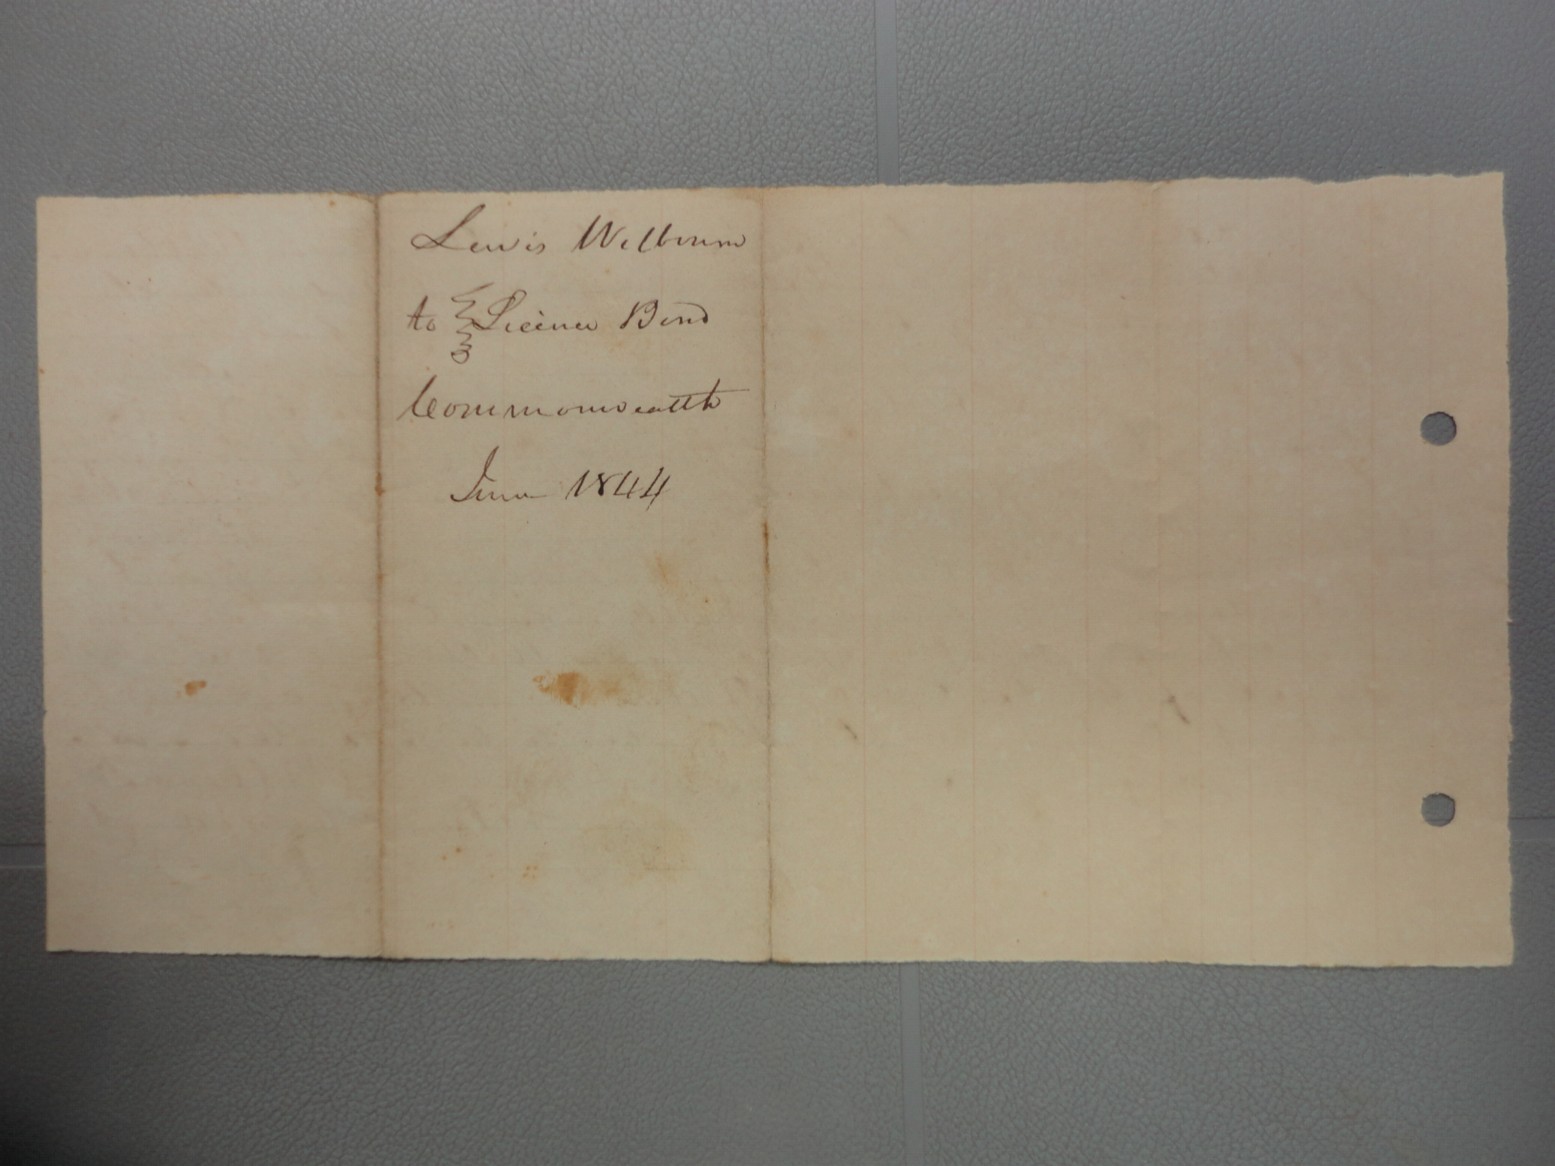 Lewis Welbourn
to } Licence Bond
Commonwealth
June 1844